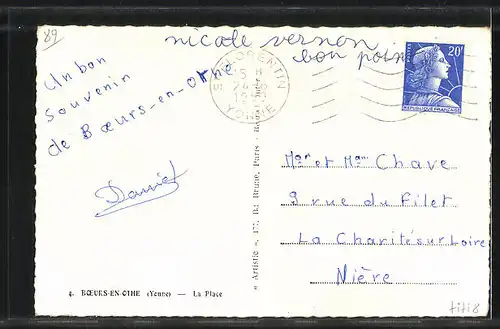 89
nicole vernon
bon point
Un bon
souvenir
de Bœurs-en-Othe
Daniel
FLORENTIN
YONNE
POSTES
20F
REPUBLIQUE FRANÇAISE
Mr et Mme Chave
9 rue du Filet
La Charité sur Loire
Nière
« Artistic », 177, Bd Brune, Paris -
4. BŒURS-EN-OTHE (Yonne) — La Place
titi8